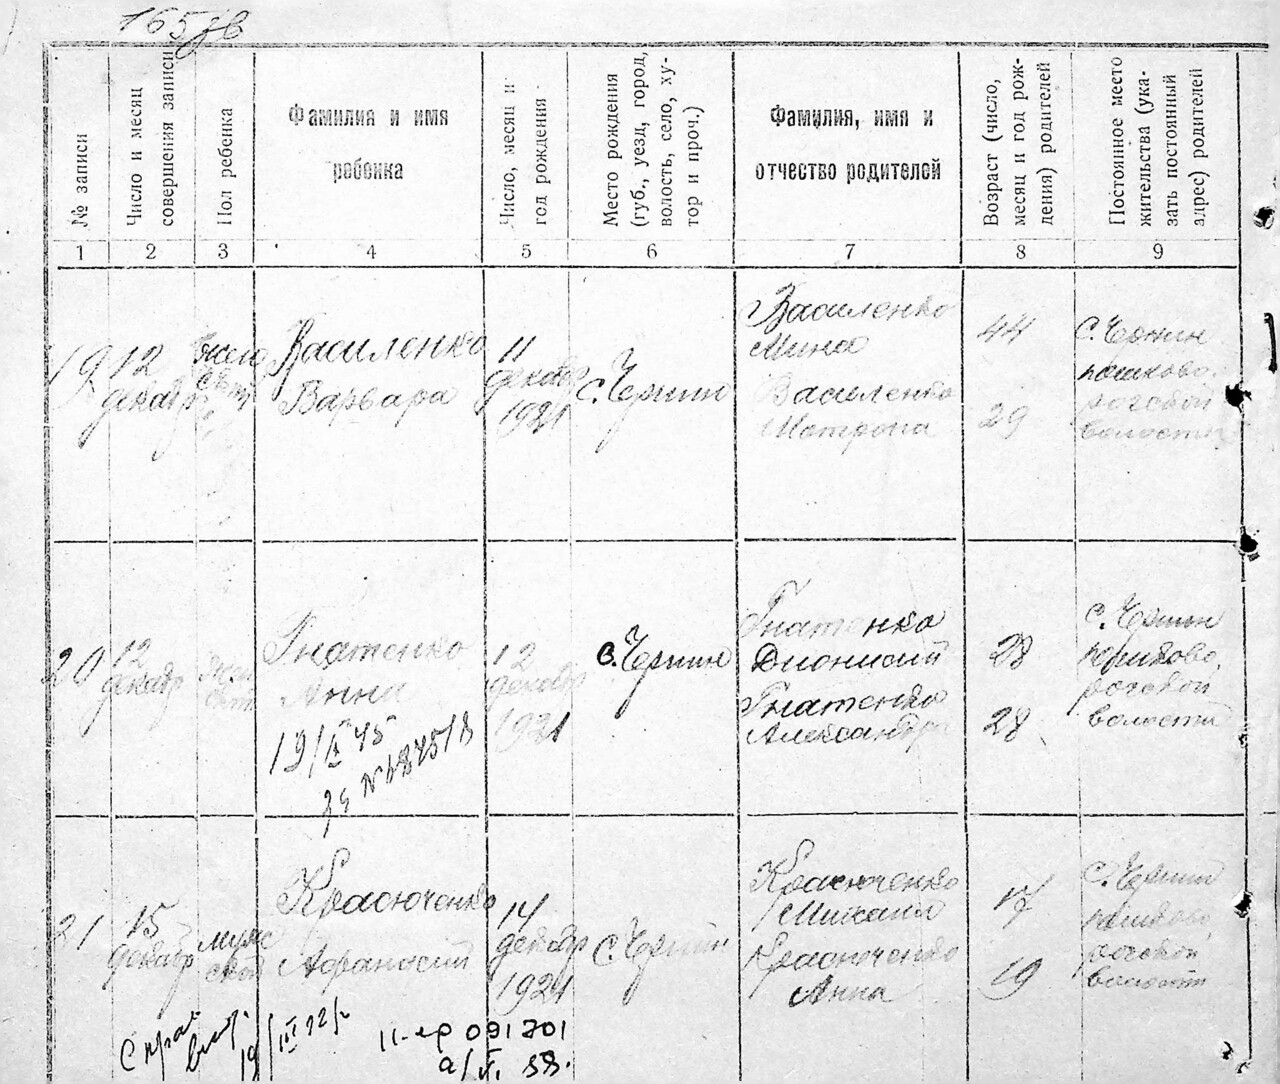 165зв
№ записи
Число и месяц
совершения записи
Пол ребенка
Фамилия и имя
ребенка
Число, месяц и
год рождения
Место рождения
(губ., уезд, город,
волость, село, ху-
тор и проч.)
Фамилия, имя и
отчество родителей
Возраст (число,
месяц и год рож-
дения) родителей
Постоянное место
жительства (ука-
зать постоянный
адрес) родителей
1 2 3 4 5 6 7 8 9
19
12
декабр
Василенко
Варвара
11
декабр
1921
с. Чернин
Василенко
Мина
Василенко
Матрона
44
29
с. Чернин
волости
20
12
декабр
Гнатенко
Анни
19/IX 45
12
декабр
1921
с. Чернин
Гнатенко
Дионисий
Гнатенко
Александр
28
28
с. Чернин
рогской
волости
21
15
декабр
муж
ской
Красюченко
Афанасий
14
декабр
1921
с. Чернин
Красюченко
Михаил
Красюченко
Анна
17
19
с. Чернин
рогской
волости
Справ
выд.
19/III 22 г
II-ер 091701